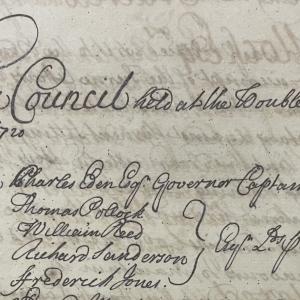 Council held at the House
1720
Charles Eden Esqr. Governor Captain
Thomas Pollock
William Reed
Richard Sanderson
Esqrs. Lds
Frederick Jones.